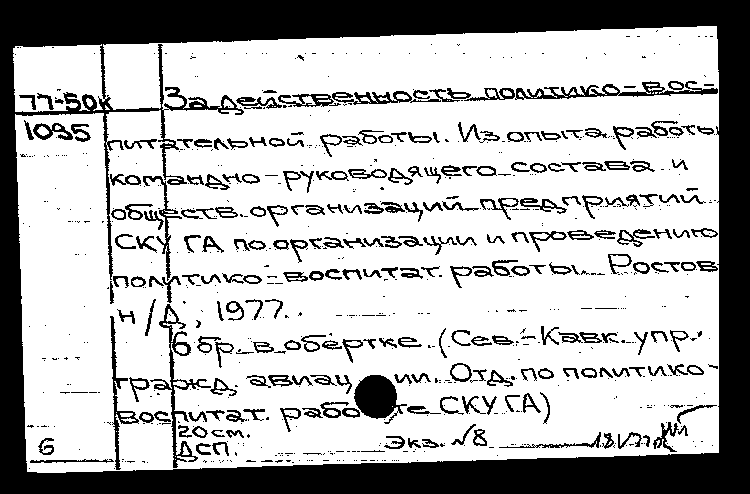 77-50к За действенность политико-вос-
1095 питательной работы. Из опыта работы
командно-руководящего состава и
обществ. организаций предприятий
СКУ ГА по организации и проведению
политико-воспитат. работы. Ростов
н/Д, 1977.
6 бр. в обертке. (Сев.-Кавк. упр.
гражд. авиации. Отд. по политико-
воспитат. работе СКУ ГА)
20 см.
ДСП. Экз. №8
6